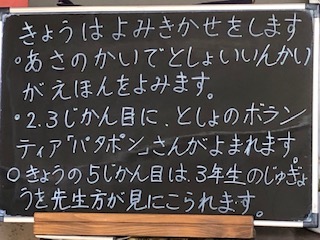 きょうはよみきかせをします
・あさのかいでとしょいいんかい
がえほんをよみます。
・2.3じかん目に、としょのボラン
ティア「パタポン」さんがよまれます。
○きょうの5じかん目は、3年生のじゅぎょ
うを先生方が見にこられます。